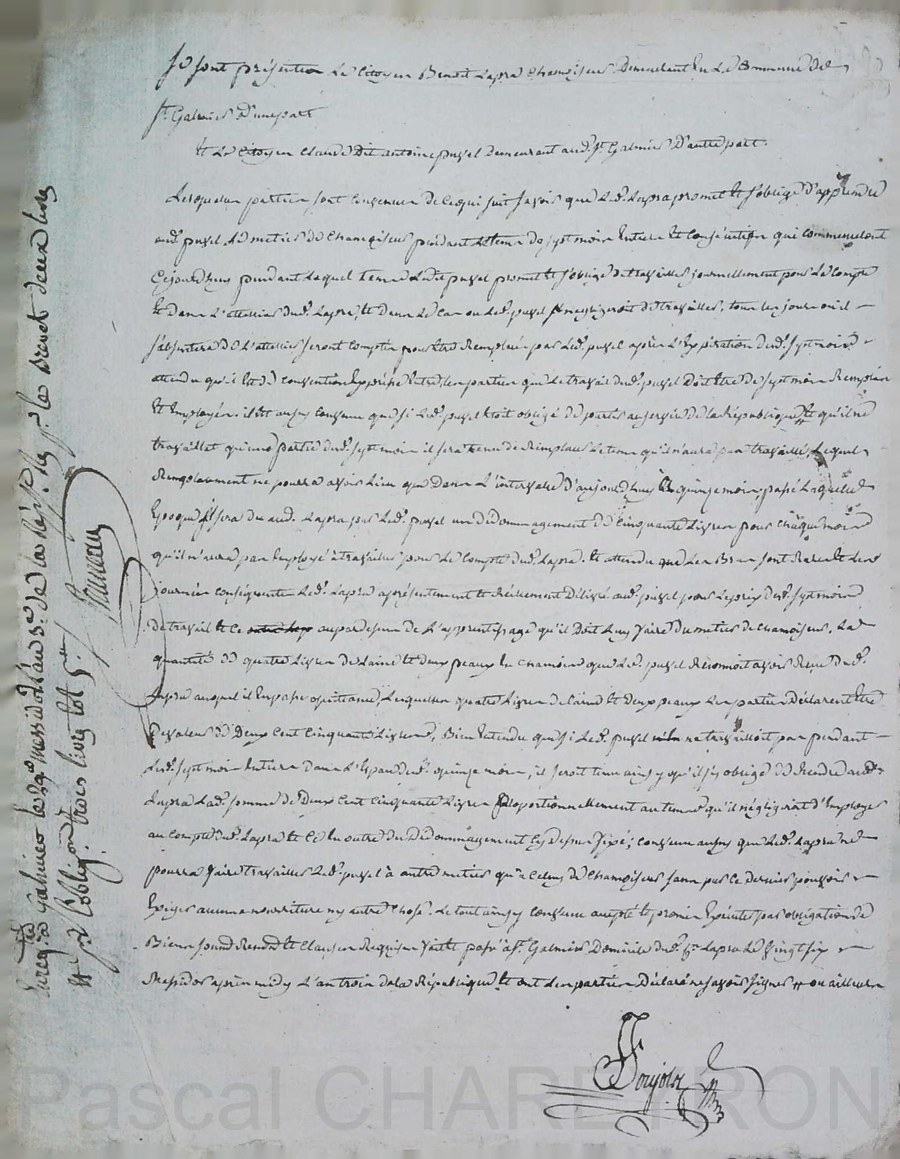 Se sont présentés Le Citoyen Benoit Lapra Chamoiseur Demeurant En La Commune de
St. Galmier d'une part
Et Le Citoyen Claude Dit Antoine puzel Demeurant aud. St. Galmier D'autre part.
Lesquelles parties sont Convenues de Ce qui suit savoir que Led. Lapra promet Et s'oblige D'apprendre
aud. puzel Le metier de Chamoiseur pendant Le tems de sept mois Entiers Et Consécutifs qui commencent
Cejourdhuy pendant Lequel tems Ledit puzel promet Et s'oblige de travailler journellement pour Le Compte
Et dans L'attellier dud. Lapra, Et dans Le Cas ou Led. puzel negligeroit de travailler, tous les jours ou il
s'absentera de L'attellier seront comptés pour Etre Remplacés par Led. puzel après L'Expiration dud. sept mois
attendu qu'il Est de convention Expresse Entre les parties que Le travail dud. puzel Doit Etre de sept mois Remplis
Et Employés. il Est aussy Convenu que si Led. puzel Etoit obligé de partir au service de la République, Et qu'il ne
travaillat qu'une partie dud. sept mois il sera tenu de Remplacer Le tems qu'il n'aura pas travaillé, Lequel
Remplacement ne pourra avoir Lieu que Dans L'intervalle D'aujourd'huy En quinze mois, passé Laquelle
Epoque Il sera du aud. Lapra par Led. puzel un Dédommagement de Cinquante Livres pour chaque mois
qu'il n'aura pas Employé à travailler pour Le Compte dud. Lapra. Et attendu que Les Bras sont Rares Et Les
journées Conséquentes Led. Lapra a présentement Et Réellement Délivré aud. puzel pour Le prix dud. sept mois
de travail Et Ce au pardessus de L'apprentissage qu'il Doit Luy faire du metier de Chamoiseur, La
quantité de quatre Livres de Laine Et Deux peaux En Chamois que Led. puzel Reconnoit avoir Reçu dud.
Lapra auquel il En passe quittance, Lesquelles quatre Livres de Laine Et Deux peaux Les parties Déclarent Etre
De valeur de Deux Cent Cinquante Livres, Bien Entendu que si Led. puzel ne travailloit pas pendant
Led. sept mois Entiers Dans L'Espace dud. quinze mois, il seroit tenu ainsy qu'il s'y oblige de Rendre aud.
Lapra Lad. somme de Deux Cent Cinquante Livres proportionnellement au tems qu'il négligerait d'Employer
au Compte dud. Lapra Et Ce En outre du Dédommagement Cy dessus fixé; Convenu aussy que Led. Lapra ne
pourra faire travailler Led. puzel à autre metier qu'a Celuy de Chamoiseur sans que Ce dernier puisse
Exiger aucune nourriture ny autre Chose. Le tout ainsy Convenu accepté Et promis Executer par obligation de
Biens soumis Renoncé Et Clauses Requises fait Et passé a St. Galmier Domicile dud. Cn. Lapra Le Vingt six
Messidor après midy L'an trois de la République Et ont Les parties Déclaré ne savoir signer
Poujolz
Enreg. à Galmier le 29 messidor l'an 3e. de la Rép. R. pr. le Brevet deux livres
et pr. l'obligaon. trois livres tot 5 #
Pascal CHAREYRON